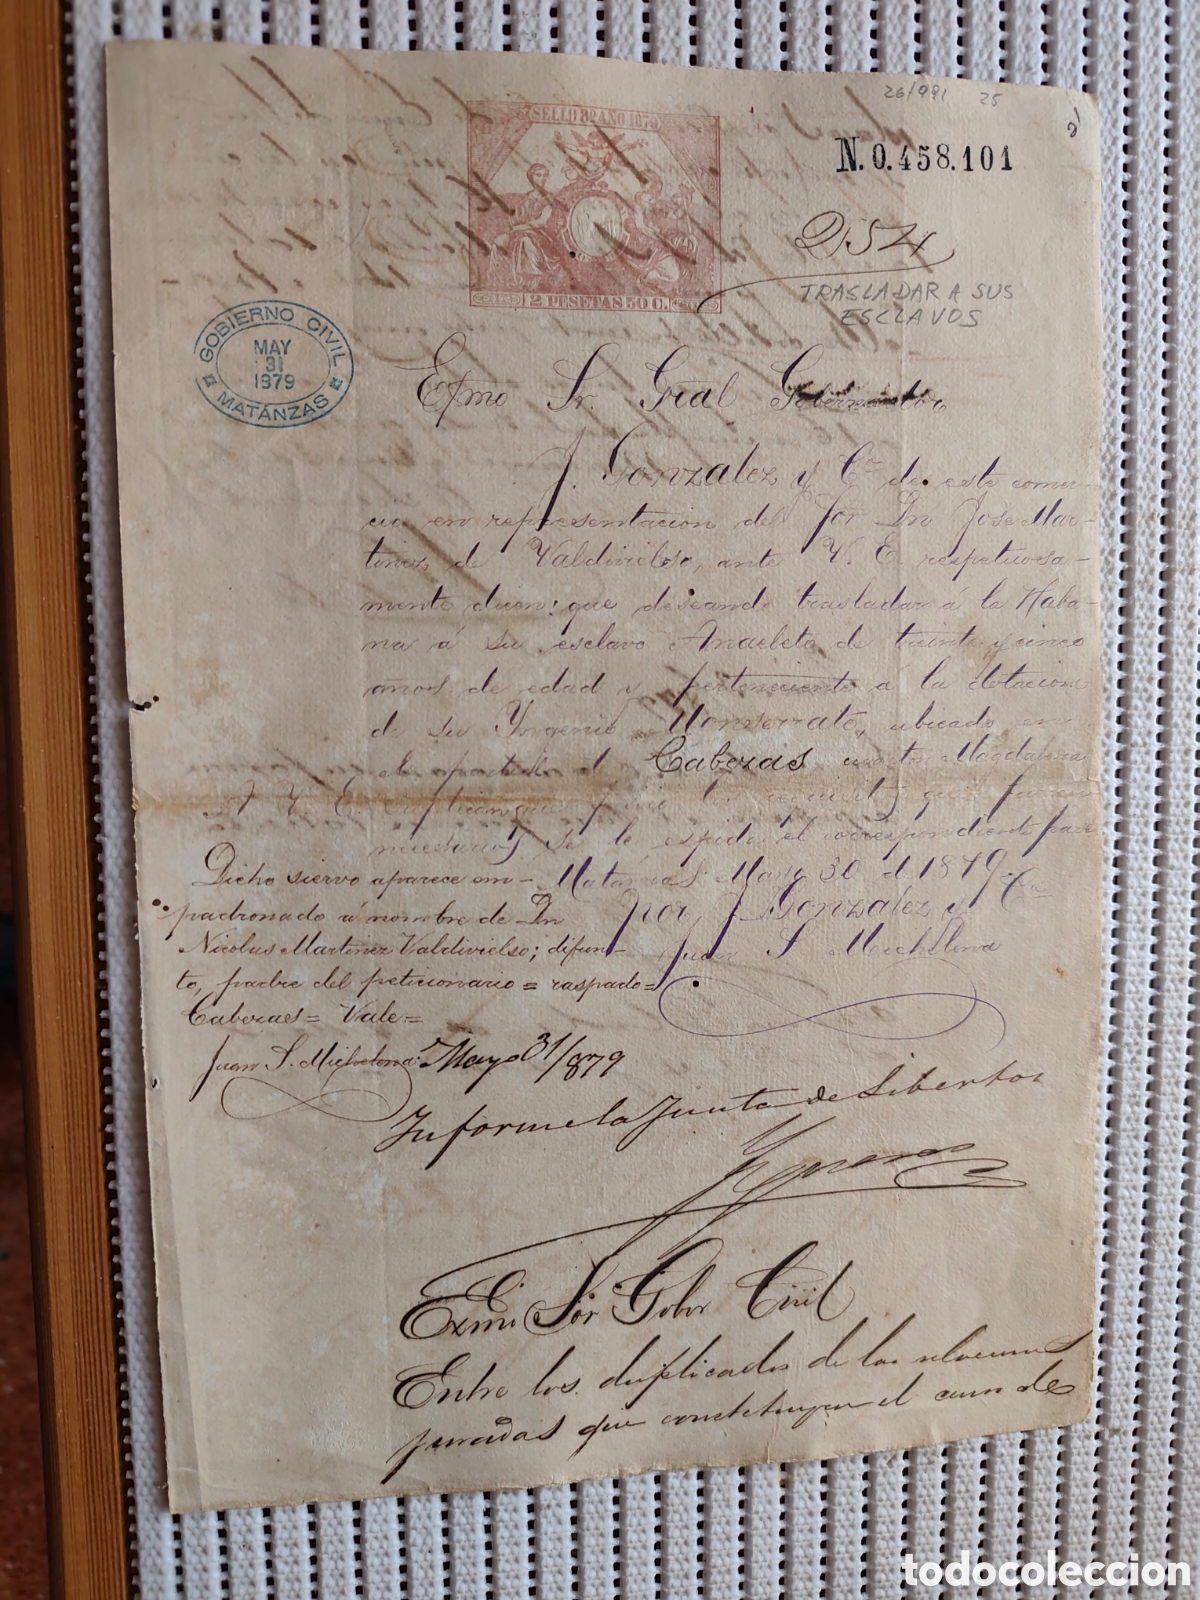 26/991 25
SELLO 8º AÑO 1879
N.0.458.101
2 PESETAS 50 C.
TRASLADAR A SUS
ESCLAVOS
GOBIERNO CIVIL
MAY
31
1879
MATANZAS
Exmo Sr. Gral Gobernador
J. Gonzalez y Cª de este comer-
cio en representacion del Sor Dn Jose Mar-
tinez de Valdivielso, ante V. E. respetuosa-
mente dicen: que deseando trasladar á la Haba-
na á su esclavo Anacleto de treinta y cinco
años de edad y perteneciente á la dotacion
de su Yngenio Monserrate, ubicado en
el partido de Cabezas
A V. E. suplican que
necesarios se le expida el correspondiente pase
Matanzas Mayo 30 de 1879
por J. Gonzalez y Cª
Juan S. Michelena
Dicho siervo aparece em-
padronado á nombre de Dn
Nicolas Martinez Valdivielso; difun-
to, padre del peticionario = raspado =
Cabezas = Vale =
Juan S. Michelena
Mayo 31/879
Informe la Junta de Libertos
Exmo Sor Gobor Civil
Entre los duplicados de las relaciones
juradas que constituyen el censo de
todocoleccion